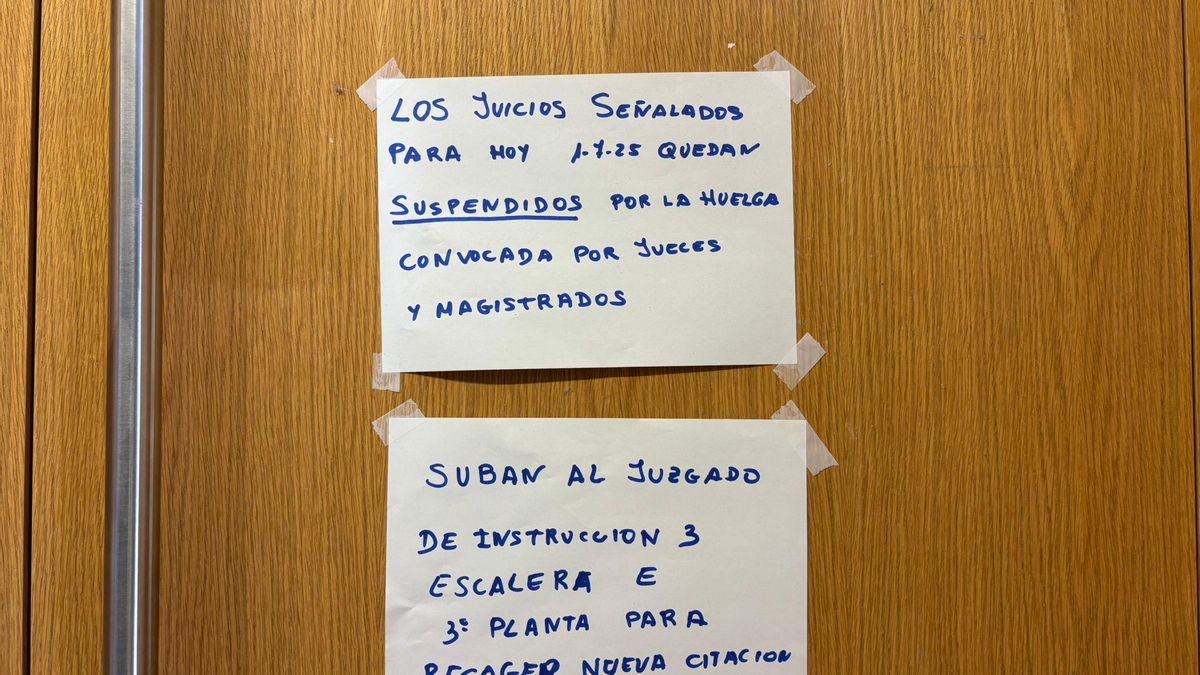 LOS JUICIOS SEÑALADOS
PARA HOY 1-7-25 QUEDAN
SUSPENDIDOS POR LA HUELGA
CONVOCADA POR JUECES
Y MAGISTRADOS
SUBAN AL JUZGADO
DE INSTRUCCION 3
ESCALERA E
3ª PLANTA PARA
RECOGER NUEVA CITACION